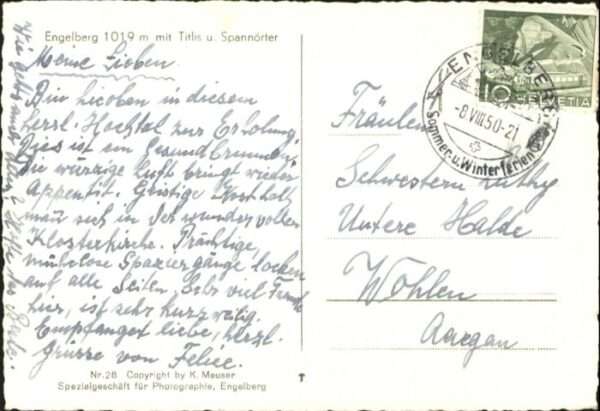 Engelberg 1019 m mit Titlis u. Spannörter
Meine Lieben
Bin hieoben in diesem
herrl. Hochtal zur Erholung.
Dies ist ein Gesundbrunnen.
Die würzige Luft bringt wieder
Appentit. Geistige Kost holt
man sich in der wundervollen
Klosterkirche. Prächtige,
mühelose Spaziergänge locken
auf alle Seiten. Sehr viel
hier, ist sehr kurzweilig.
Empfanget liebe, herzl.
Grüsse von Felice.
Wie geht's auch Allen?
Nr. 28 Copyright by K. Meuser
Spezialgeschäft für Photographie, Engelberg
10 HELVETIA
ENGELBERG
-8.VIII.50-21
Sommer-u.Winterferien
Fräulein
Schwestern Lüthy
Untere Halde
Wohlen
Aargau